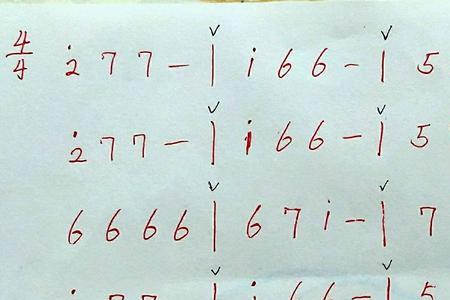 4/4 2̇ 7 7 - | 1̇ 6 6 - | 5
2̇ 7 7 - | 1̇ 6 6 - | 5
6 6 6 6 | 6 7 1̇ - | 7